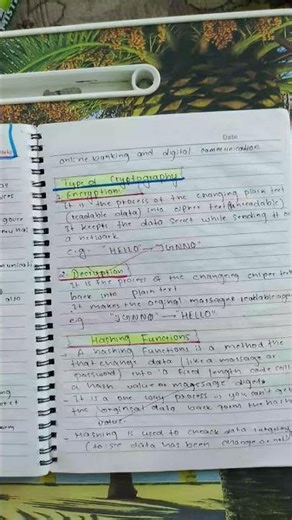 Date
online banking and digital communication
Type of Cryptography
1. Encryption
It is the process of the changing plain text
(readable data) into cipher text (unreadable)
It keepts the data secret while sending it
a network
e.g "HELLO" → "IGNNO"
2. Decryption
It is the process of the changeing
back into plain text
It makes the original massages readable again
eg "IGNNO" → "HELLO"
Hashing Functions
- A hashing functions is a method the
that change data (like a massage or
password) into a fixed length code call
a hash value or massage digest
- It is a one way process is you can't get
the original data back form the hash
value
- Hashing is used to check data
(to see data has been change or not)
also